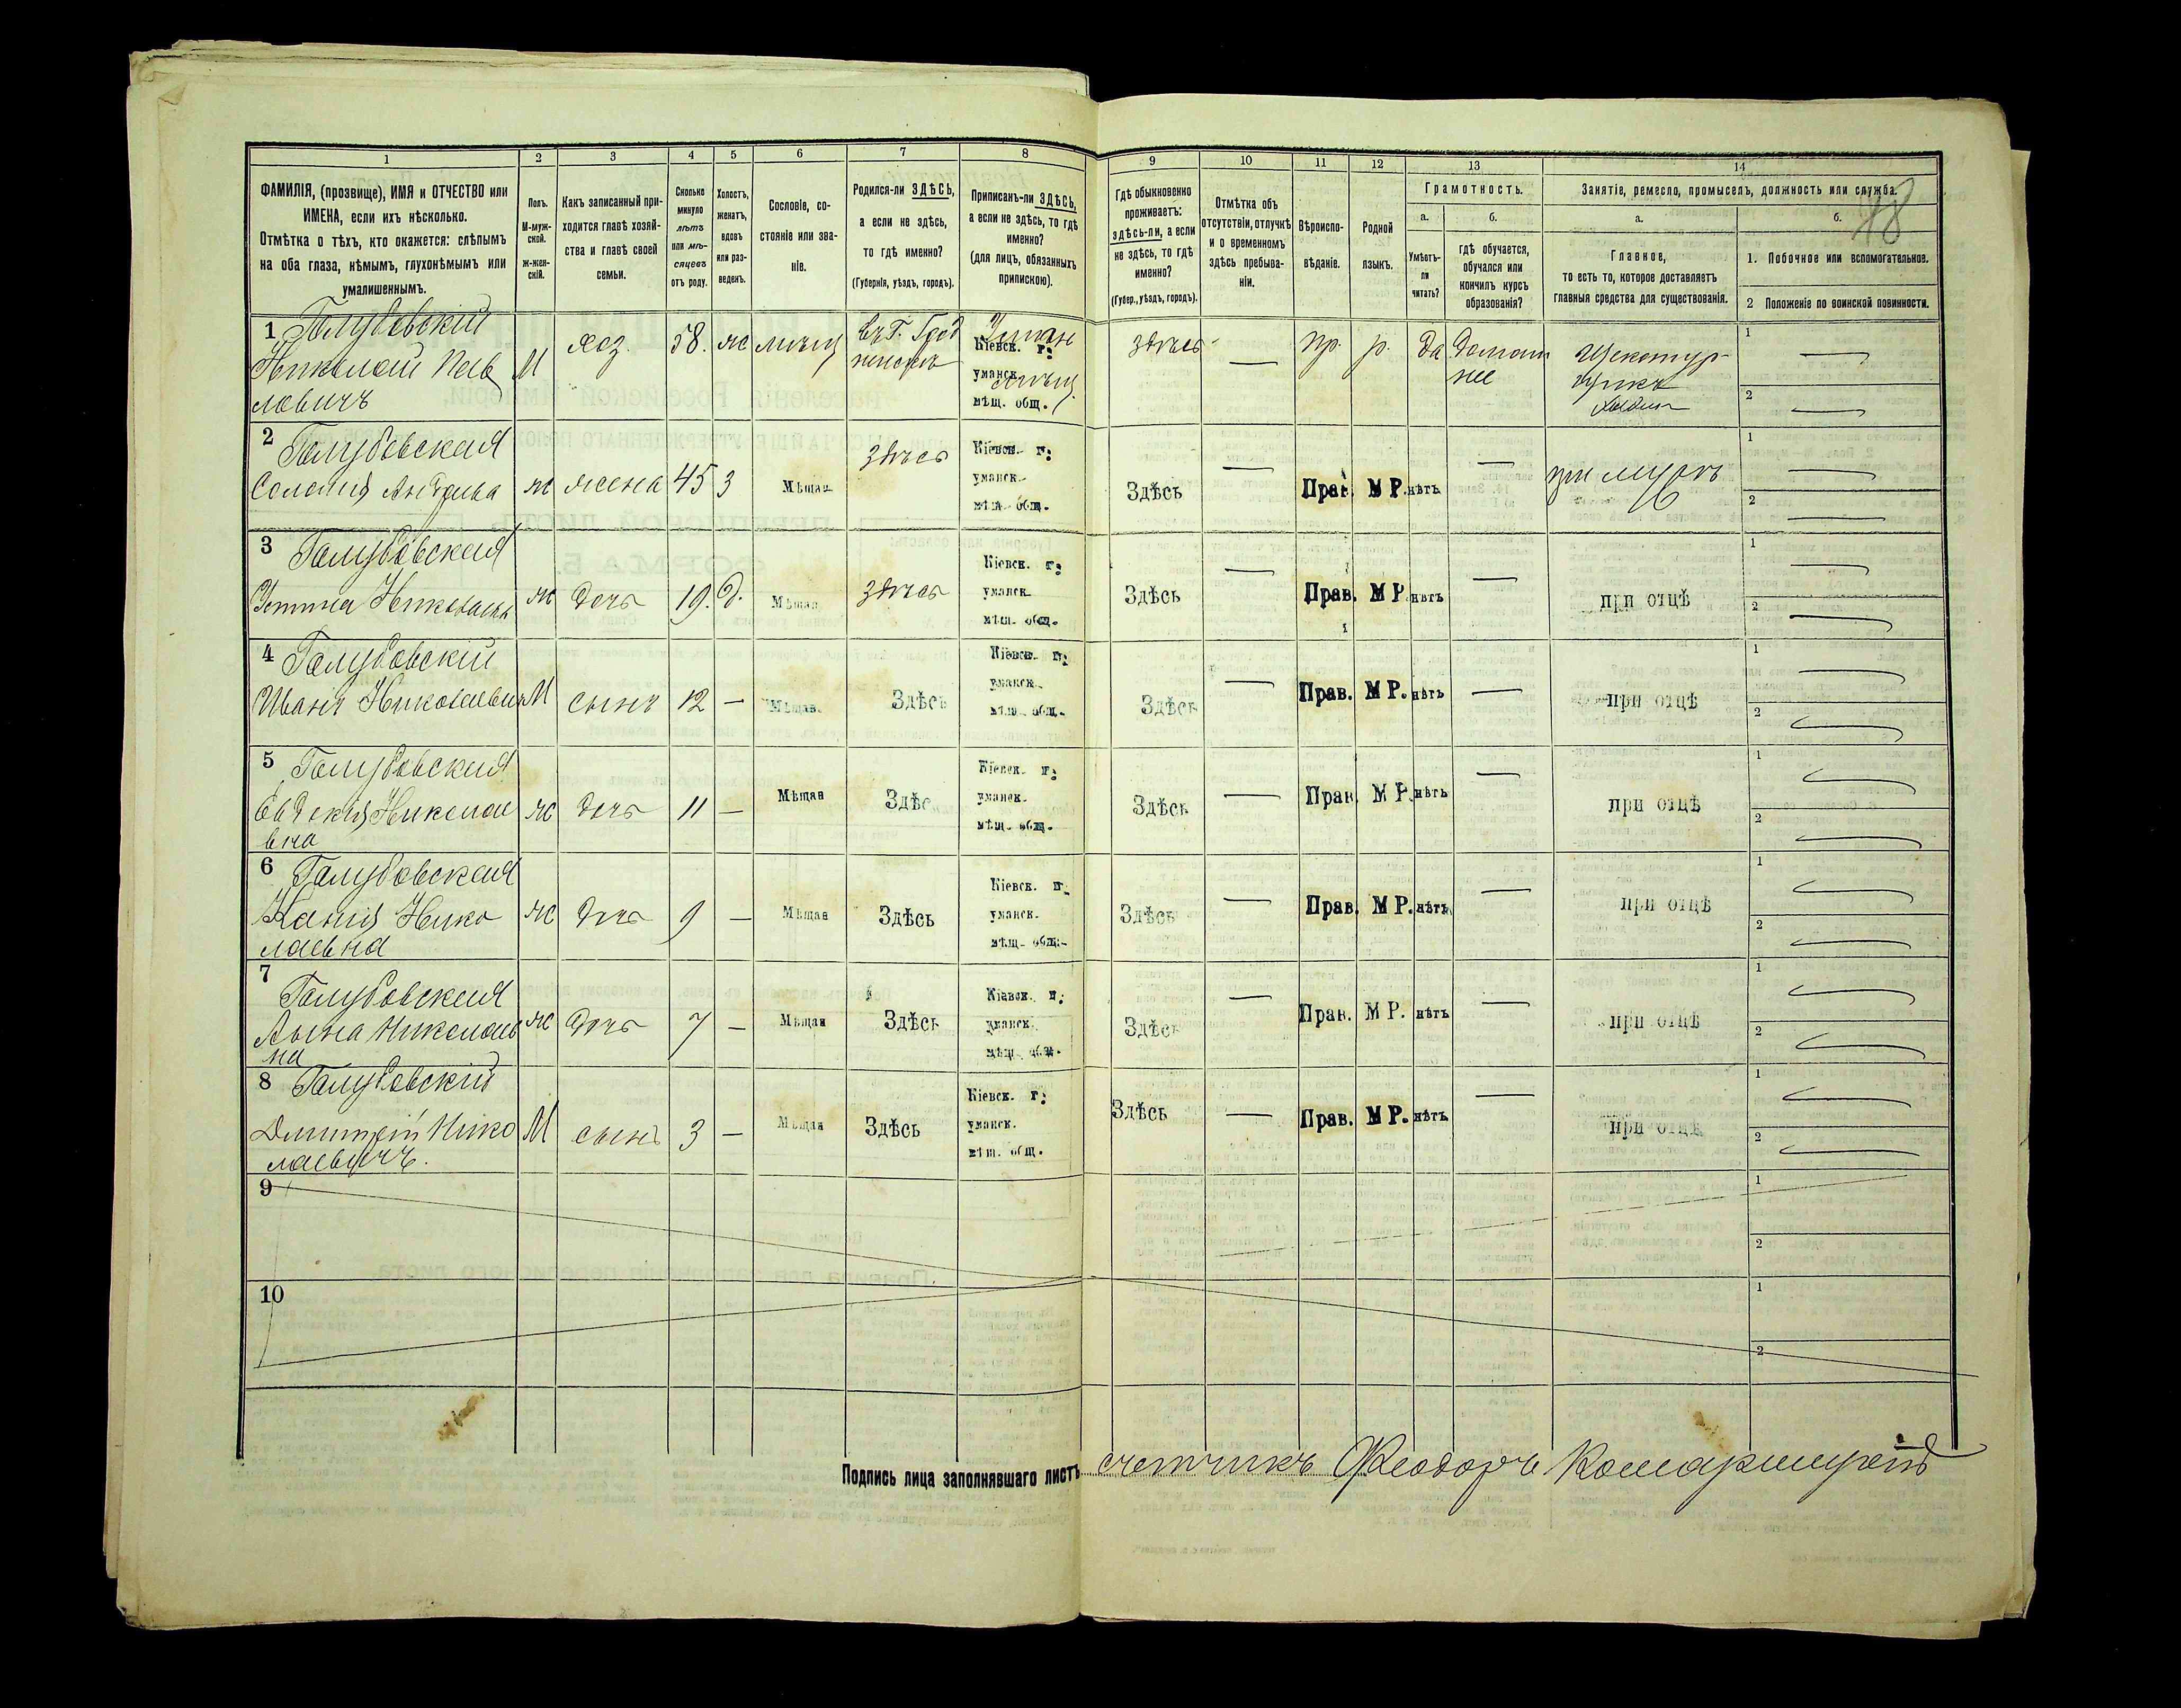 1 2 3 4 5 6 7 8 9 10 11 12 13 14
ФАМИЛІЯ, (прозвище), ИМЯ и ОТЧЕСТВО или
ИМЕНА, если ихъ нѣсколько.
Отмѣтка о тѣхъ, кто окажется: слѣпымъ
на оба глаза, нѣмымъ, глухонѣмымъ или
умалишеннымъ.
Полъ.
М-муж-
ской.
Ж-жен-
скій.
Какъ записанный при-
ходится главѣ хозяй-
ства и главѣ своей
семьи.
Сколько
минуло
лѣтъ
или мѣ-
сяцевъ
отъ роду.
Холостъ,
женатъ,
вдовъ
или раз-
веденъ.
Сословіе, со-
стояніе или зва-
ніе.
Родился-ли ЗДѢСЬ,
а если не здѣсь,
то гдѣ именно?
(Губернія, уѣздъ, городъ).
Приписанъ-ли ЗДѢСЬ,
а если не здѣсь, то гдѣ
именно?
(для лицъ, обязанныхъ
припискою).
Гдѣ обыкновенно
проживаетъ:
здѣсь-ли, а если
не здѣсь, то гдѣ
именно?
(Губер., уѣздъ, городъ).
Отмѣтка объ
отсутствіи, отлучкѣ
и о временномъ
здѣсь пребыва-
ніи.
Вѣроиспо-
вѣданіе.
Родной
языкъ.
Грамотность.
а.
Умѣетъ-
ли
читать?
б.
гдѣ обучается,
обучался или
кончилъ курсъ
образованія?
Занятіе, ремесло, промыселъ, должность или служба.
а.
Главное,
то есть то, которое доставляетъ
главныя средства для существованія.
б.
1. Побочное или вспомогательное.
2 Положеніе по воинской повинности.
48
1 Голубовскій
Николай Пав
ловичъ
М хоз. 58. ж
здѣсь пр. р. да домаш
нее
Кіевск. г:
уманск.
мѣщ. общ.
1
2
2 Голубовская
ж жена 45 з Мѣщан здѣсь
Кіевск. г:
уманск.
мѣщ. общ.
Здѣсь — Прав. М Р. нѣтъ — при мужѣ
1 —
2 —
3 Голубовская
ж дочь 19. д. Мѣщан здѣсь
Кіевск. г:
уманск.
мѣщ. общ.
Здѣсь — Прав. М Р. нѣтъ — при отцѣ
1 —
2 —
4 Голубовскій
Иванъ Николаевич М сынъ 12 — Мѣщан. Здѣсь
Кіевск. г:
уманск.
мѣщ. общ.
Здѣсь — Прав. М Р. нѣтъ — при отцѣ
1 —
2 —
5 Голубовская
Евдокія Николае
вна
ж дочь 11 — Мѣщан Здѣсь
Кіевск. г:
уманск.
мѣщ. общ.
Здѣсь — Прав. М Р. нѣтъ — при отцѣ
1 —
2 —
6 Голубовская
Нико
лаевна
ж дочь 9 — Мѣщан Здѣсь
Кіевск. г:
уманск.
мѣщ. общ.
Здѣсь — Прав. М Р. нѣтъ — при отцѣ
1 —
2 —
7
Голубовская
Анна Николаев
на
ж дочь 7 — Мѣщан Здѣсь
Кіевск. г:
уманск.
мѣщ. общ.
Здѣсь — Прав. М Р. нѣтъ — при отцѣ
1 —
2 —
8 Голубовскій
Дмитрій Нико
лаевичъ.
М сынъ 3 — Мѣщан Здѣсь
Кіевск. г:
уманск.
мѣщ. общ.
Здѣсь — Прав. М Р. нѣтъ — при отцѣ
1 —
2 —
9
1
2
10
1
2
Подпись лица заполнявшаго листъ счетчикъ Феодоръ